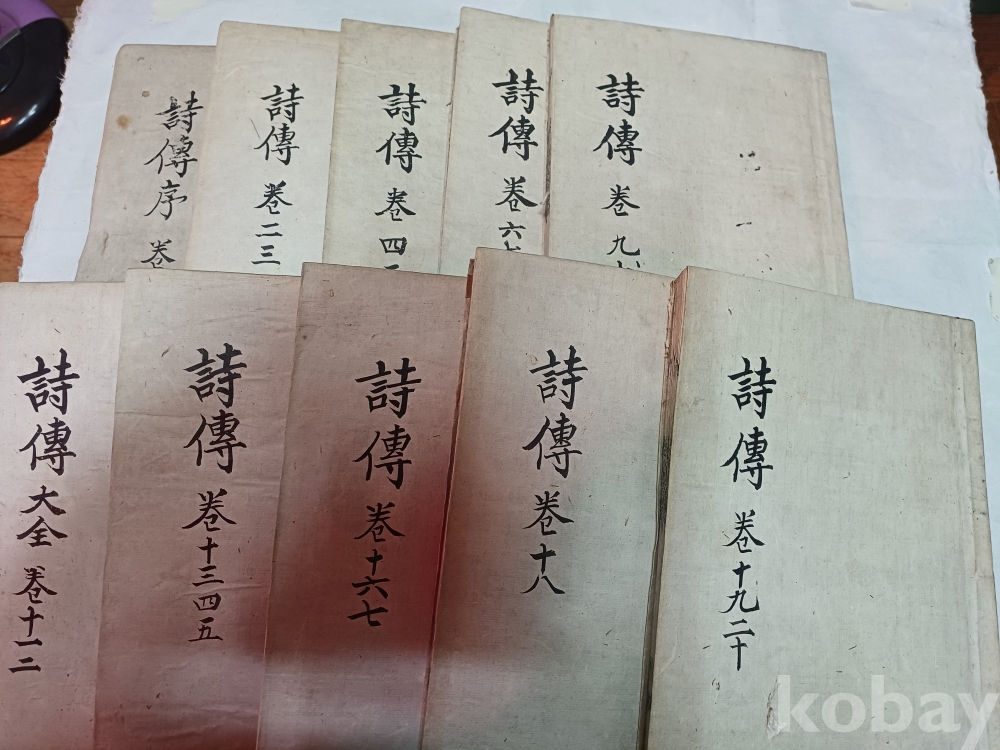 詩傳序 卷
詩傳 卷二三
詩傳 卷四
詩傳 卷六七
詩傳 卷九十
詩傳大全 卷十一二
詩傳 卷十三四五
詩傳 卷十六七
詩傳 卷十八
詩傳 卷十九二十
kobay